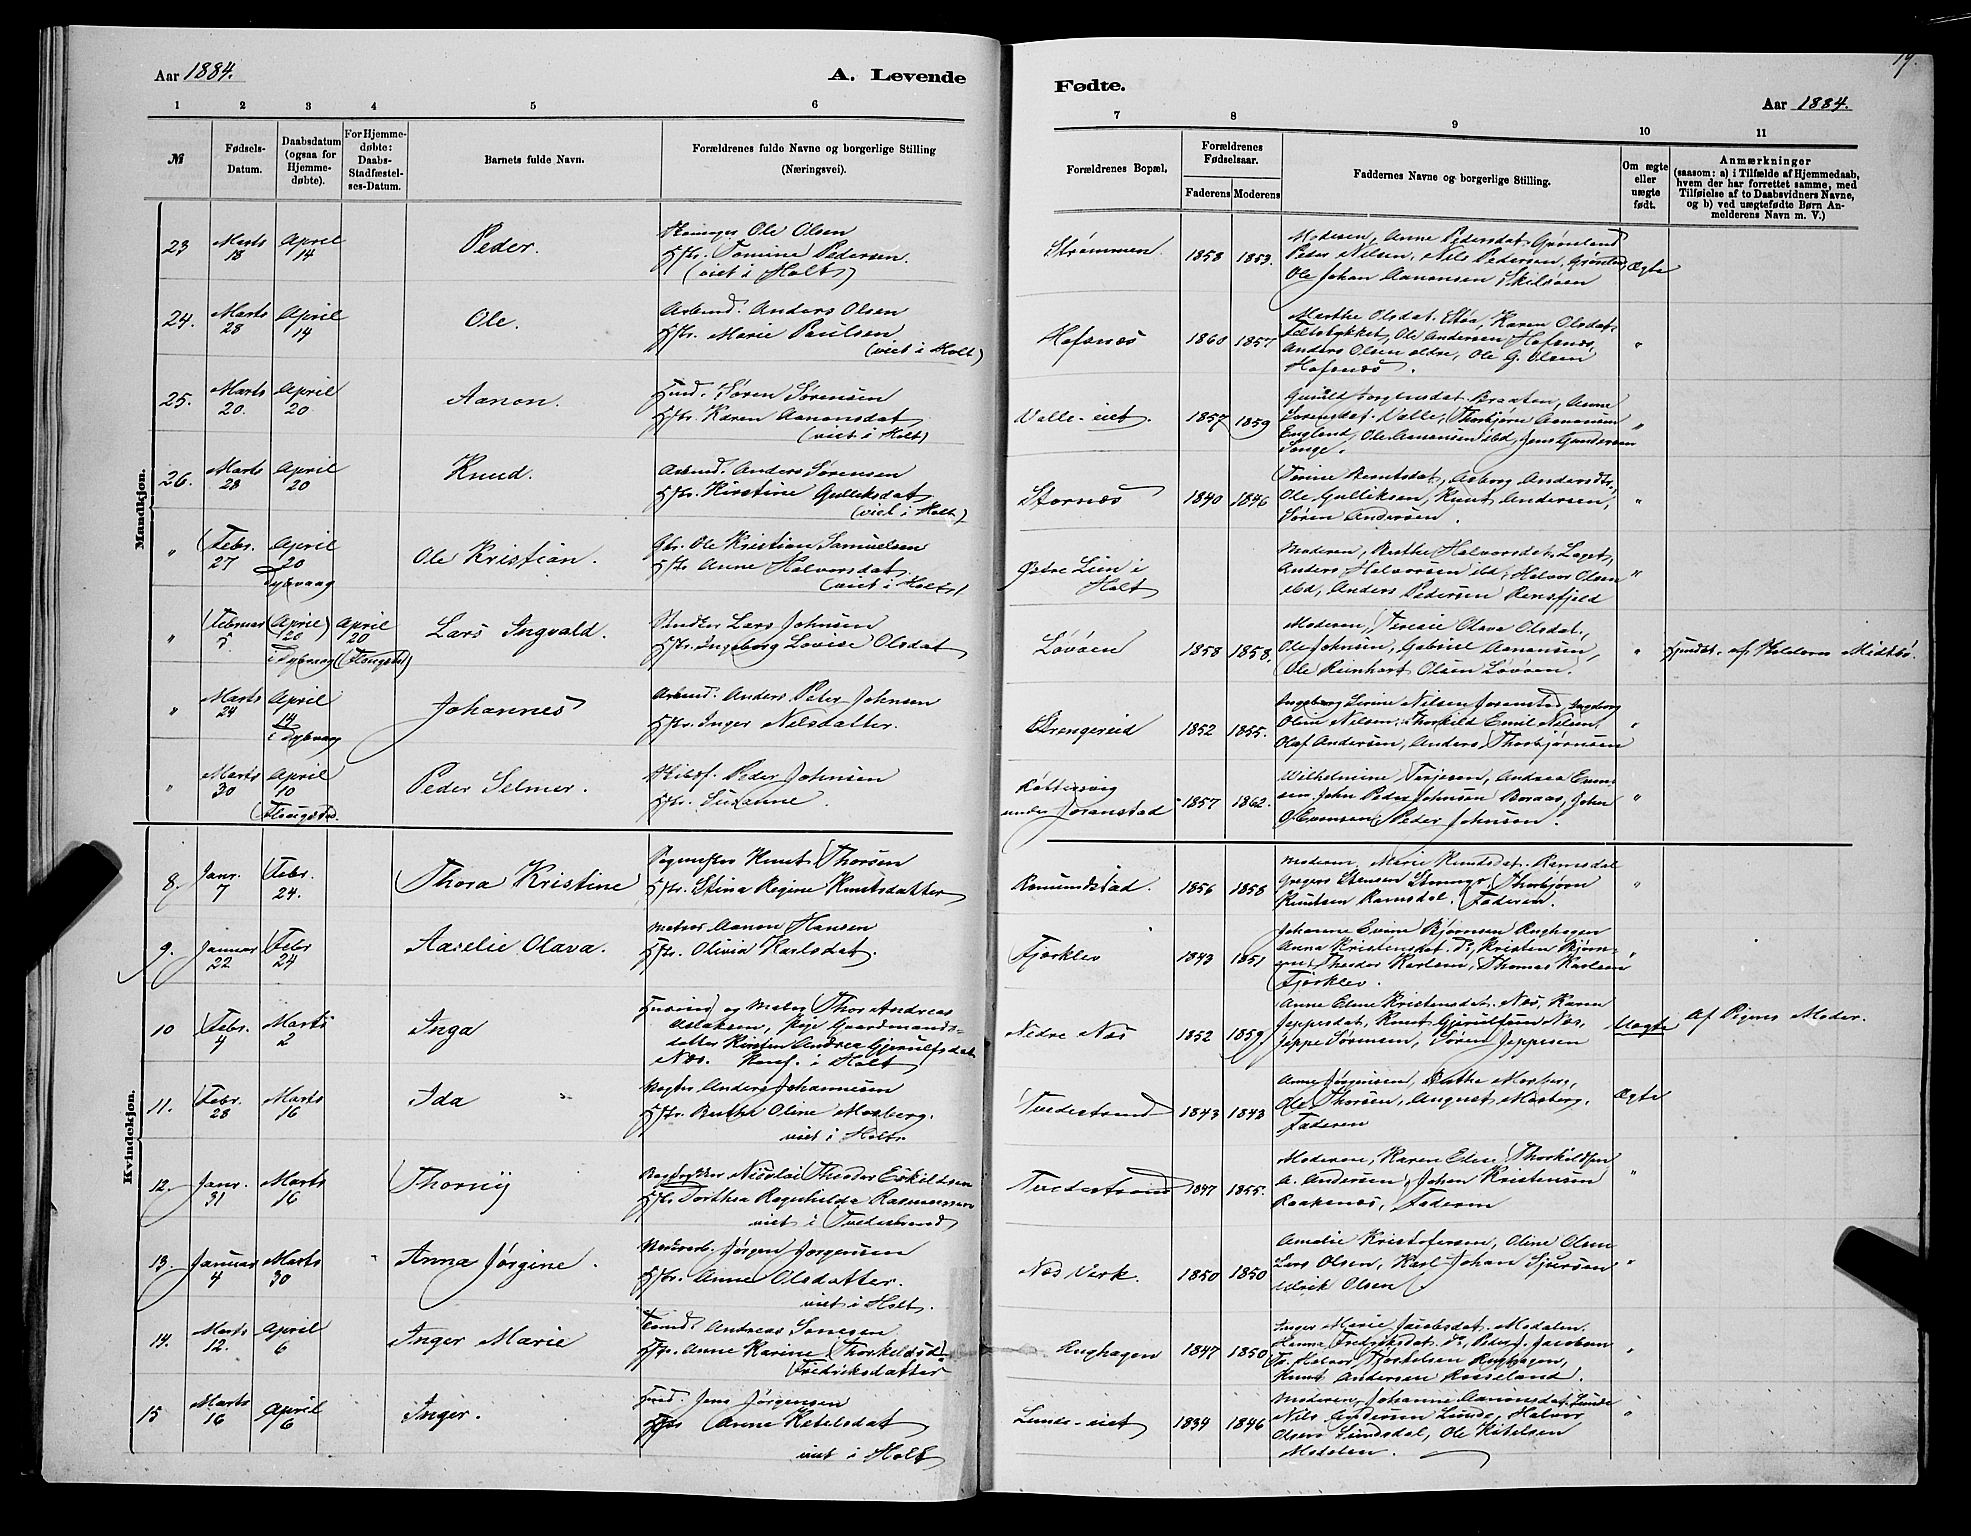 Aar 1884.
A. Levende
Fødte.
19.
Aar 1884.
1 2 3 4 5 6
7 8 9 10 11
№
Fødsels-Datum.
Daabsdatum (ogsaa for Hjemmedøbte).
For Hjemmedøbte: Daabs-Stadfæstelses-Datum.
Barnets fulde Navn.
Forældrenes fulde Navne og borgerlige Stilling (Næringsvei).
Forældrenes Bopæl,
Forældrenes Fødselsaar.
Faderens Moderens
Faddernes Navne og borgerlige Stilling.
Om ægte eller uægte født.
Anmærkninger
(saasom: a) i Tilfælde af Hjemmedaab, hvem der har forrettet samme, med Tilføielse af to Daabsvidners Navne, og b) ved uægtefødte Børn Anmelderens Navn m. V.)
Mandkjøn.
23 Marts 18 April 14 Peder.
Ole Olsen
Htr. Tomine Pedersen.
(viet i Holt)
Strømmen 1858 1853.
Moderen, Anne Pedersdat. Grønland
Peder Nilsen, Nils Pedersen, Grønland,
Ole Johan Aanonsen Skilsøen
Ægte
24. Marts 28 April 14 Ole.
Arbmd. Anders Olsen
Htr. Marie Paulsen
(viet i Holt)
Hofsnæs 1860 1857
Marthe Olsdat. Støa, Karen Olsdat.
Ole Andersen Hofsnæs,
Anders Olsen ældre, Ole G. Olsen
Hofsnæs.
"
25. Marts 20. April 20 Aanon.
Hmd. Søren Sørensen
Htr. Karen Aanonsdat.
(viet i Holt)
Valle-eiet. 1857 1859
Braaten, Anne
Sørensdat. Valle, Thorbjørn Aanonsen
England, Ole Aanonsen ibd, Jens Gundersen
Songe.
"
26. Marts 28 April 20 Knud.
Arbmd. Anders Sørensen
Htr. Kirstine Gulliksdat.
(viet i Holt)
Stornæs 1840 1846
Tomine Berntsdat, Asborg Andersdtr,
Ole Gulliksen, Knut Andersen,
Søren Andersen.
"
" Febr. 27 April 20 Dybvaag Ole Kristian.
Gbr. Ole Kristian Samuelsen
Htr. Anne Halvorsdat.
(viet i Holt)
Østre Lien i Holt
Moderen, Berthe Halvorsdat. Laget,
Anders Halvorsen ibd, Halvor Olsen
ibd, Anders Pedersen Rensfjeld
"
" Februar 5. (April 20) i Dybvaag April 20 (Flougstad) Lars Ingvald.
Lars Johnsen
Htr. Ingeborg Lovise Olsdat.
Løvøen 1858 1858.
Moderen, Teresie Olava Olsdat.,
Ole Johnsen, Gabriel Aanonsen,
Ole Reinhart Olsen Løvøen.
" Hjmdøbt. af Holderen Midtbø.
" Marts 24 April 14 i Dybvaag Johannes
Arbmd. Anders Peter Johnsen
Htr. Inger Nilsdatter.
Strengereid 1852 1855.
Ingeborg Serine Nilsen Joranstad, Ingeborg
Oline Nilsen, Thorkild Emil Nilsen,
Olaf Andersen, Anders Thorbjørnsen
"
" Marts 30 April 10 Flougstad. Peder Selmer.
Peder Johnsen
Htr. Susanne.
under Joranstad 1857 1862.
Wilhelmine Terjesen, Andrea Evensen.
John Peder Johnsen Boraas, John
G. Evensen, Peder Johnsen.
"
Kvindekjøn.
8. Janr. 7 Febr. 24. Thora Kristine
Knut Thorsen
Htr. Stina Regine Knutsdatter
Romundstad. 1856 1858
Moderen, Marie Knutsdat. Ramsdal
Gregers Stensen Thorbjørn
Knutsen Ramsdal. Faderen.
"
9. Januar 22 Febr 24 Aaselie Olava.
Matros Aanon Hansen
Htr. Olivia Karlsdat.
Fjærklev 1843 1851
Johanne Evine Bjørnsen Rughagen
Anna Kristensdat. Do, Kristen Bjørnsen,
Theodor Karlsen, Thomas Karlsen
Fjærklev.
"
10 Febr. 4 Marts 2 Inga
og Maler Thor Andreas
Aslaksen, Pige Gaardmandsdatter
Kirsten Andrea Gjerulfsdat.
Næs. i Holt
Nedre Næs 1852 1859
Anne Elene Kristensdat. Næs, Karen
Jeppesdat, Knut Gjerulfsen Næs,
Jeppe Sørensen, Søren Jeppesen
Uægte Af Pigens Moder.
11. Febr. 28 Marts 16 Ida
Anders Johannesen
Htr. Berthe Oline Morberg.
viet i Holt.
Tvedestrand 1843 1843
Anne Jørgensen, Berthe Morberg,
Ole Thorsen, August Morberg.
Faderen
Ægte
12. Janr. 31 Marts 16 Thorny
Bogtrykker Nicolai Theodor Eskildsen
Htr. Dorthea Ragnhilda Rasmussen
viet i Tvedestrand
Tvedestrand 1847 1855.
Moderen, Karen Eline Thorkildsen
A. Andersen, Johan Kristensen
Raakenæs, Faderen
"
13. Januar 4 Marts 30 Anna Jørgine.
Jørgen Jørgensen
Htr. Anne Olsdatter.
viet i Holt.
Næs Verk. 1850 1850
Amalie Kristofersen, Oline Olsen
Lars Olsen, Karl Johan Syversen
Edrik Olsen
"
14. Marts 12. April 6 Inger Marie
Andreas Sønesen
Htr. Anne Karine Thorkildsd.
Fredriksdatter
Rughagen 1847 1850
Inger Marie Jacobsdat. Modalen.
Hanna Fredriksdat. Do, Peder J. Jacobsen
Do. Halvor Thorkelsen Rughagen,
Knut Andersen Rosseland.
"
15 Marts 16 April 6 Inger.
Hmd. Jens Jørgensen
Htr Anne Ketelsdat.
viet i Holt
Lunde-eiet 1834 1846
Moderen, Johanne Aanonsdat. Lunde
Nils Andersen Lunde, Halvor
Olsen Lundsdal, Ole Ketelsen
Modalen.
"